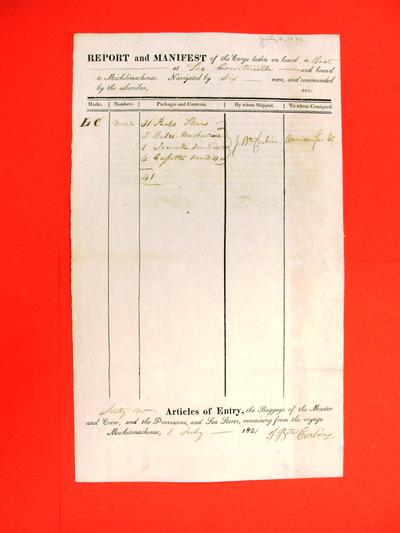 July 8, 1821
REPORT and MANIFEST of the Cargo laden on board a Boat
at Lac Courtorielle and bound
to Michilimackinac. Navigated by Six men, and commanded
by the subscriber,
Marks. Numbers. Packages and Contents. By whom Shipped. To whom Consigned.
LC None 31 Packs Skins
5 Bales Merchandise J. Bte Corbin American Fur Co
1 Trunk Sundries
4 Cassettes Sundries
41
Articles of Entry, the Baggage of the Master
and Crew, and the Provisions, and Sea Stores, remaining from the voyage.
Michilimackinac, 8 July 1821 J. Bte Corbin